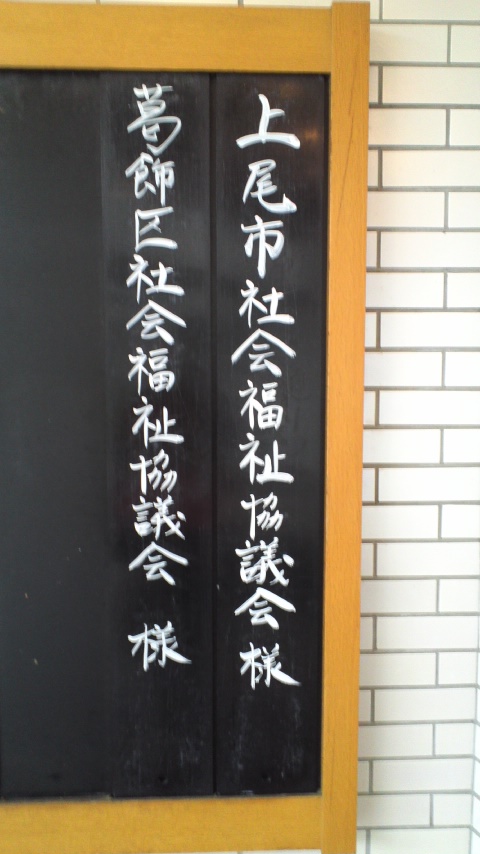 上尾市社会福祉協議会様
葛飾区社会福祉協議会 様